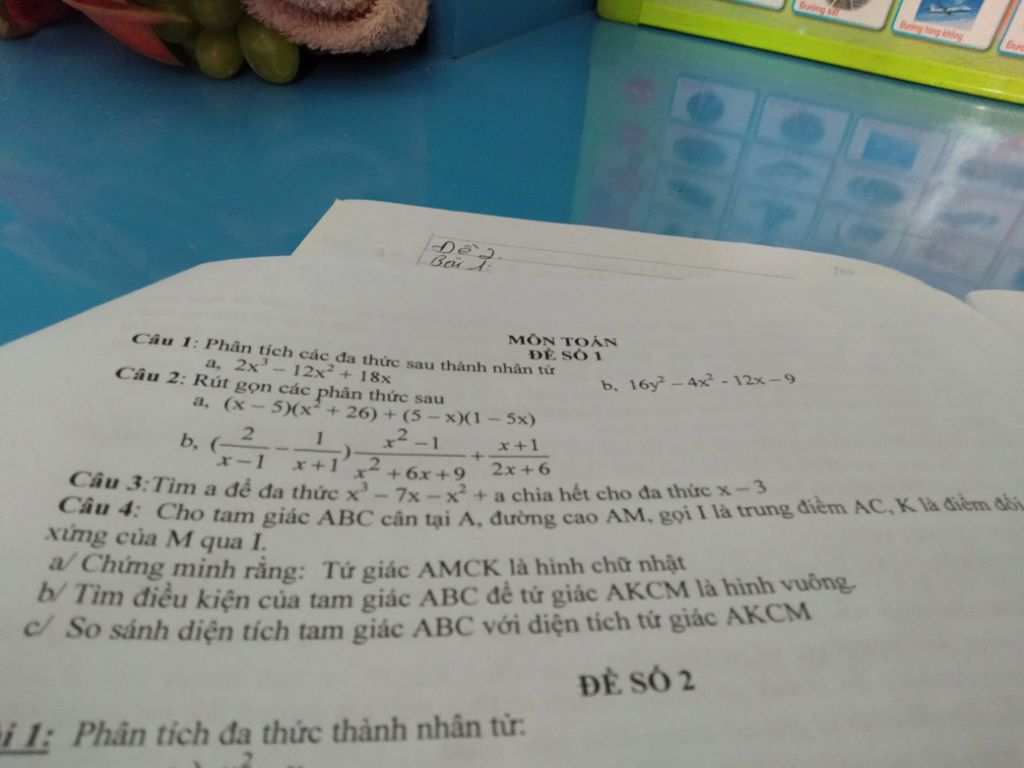 Đường sắt
Đường hàng không
Đề 2.
Bài 1:
MÔN TOÁN
ĐỀ SỐ 1
Câu 1: Phân tích các đa thức sau thành nhân tử
a, 2x³ − 12x² + 18x
b, 16y² − 4x² - 12x − 9
Câu 2: Rút gọn các phân thức sau
a, (x − 5)(x² + 26) + (5 − x)(1 − 5x)
b, (2/(x−1) − 1/(x+1)) (x²−1)/(x²+6x+9) + (x+1)/(2x+6)
Câu 3:Tìm a để đa thức x³ − 7x − x² + a chia hết cho đa thức x − 3
Câu 4: Cho tam giác ABC cân tại A, đường cao AM, gọi I là trung điểm AC, K là điểm đối
xứng của M qua I.
a/ Chứng minh rằng: Tứ giác AMCK là hình chữ nhật
b/ Tìm điều kiện của tam giác ABC để tứ giác AKCM là hình vuông.
c/ So sánh diện tích tam giác ABC với diện tích tứ giác AKCM
ĐỀ SỐ 2
1: Phân tích đa thức thành nhân tử: